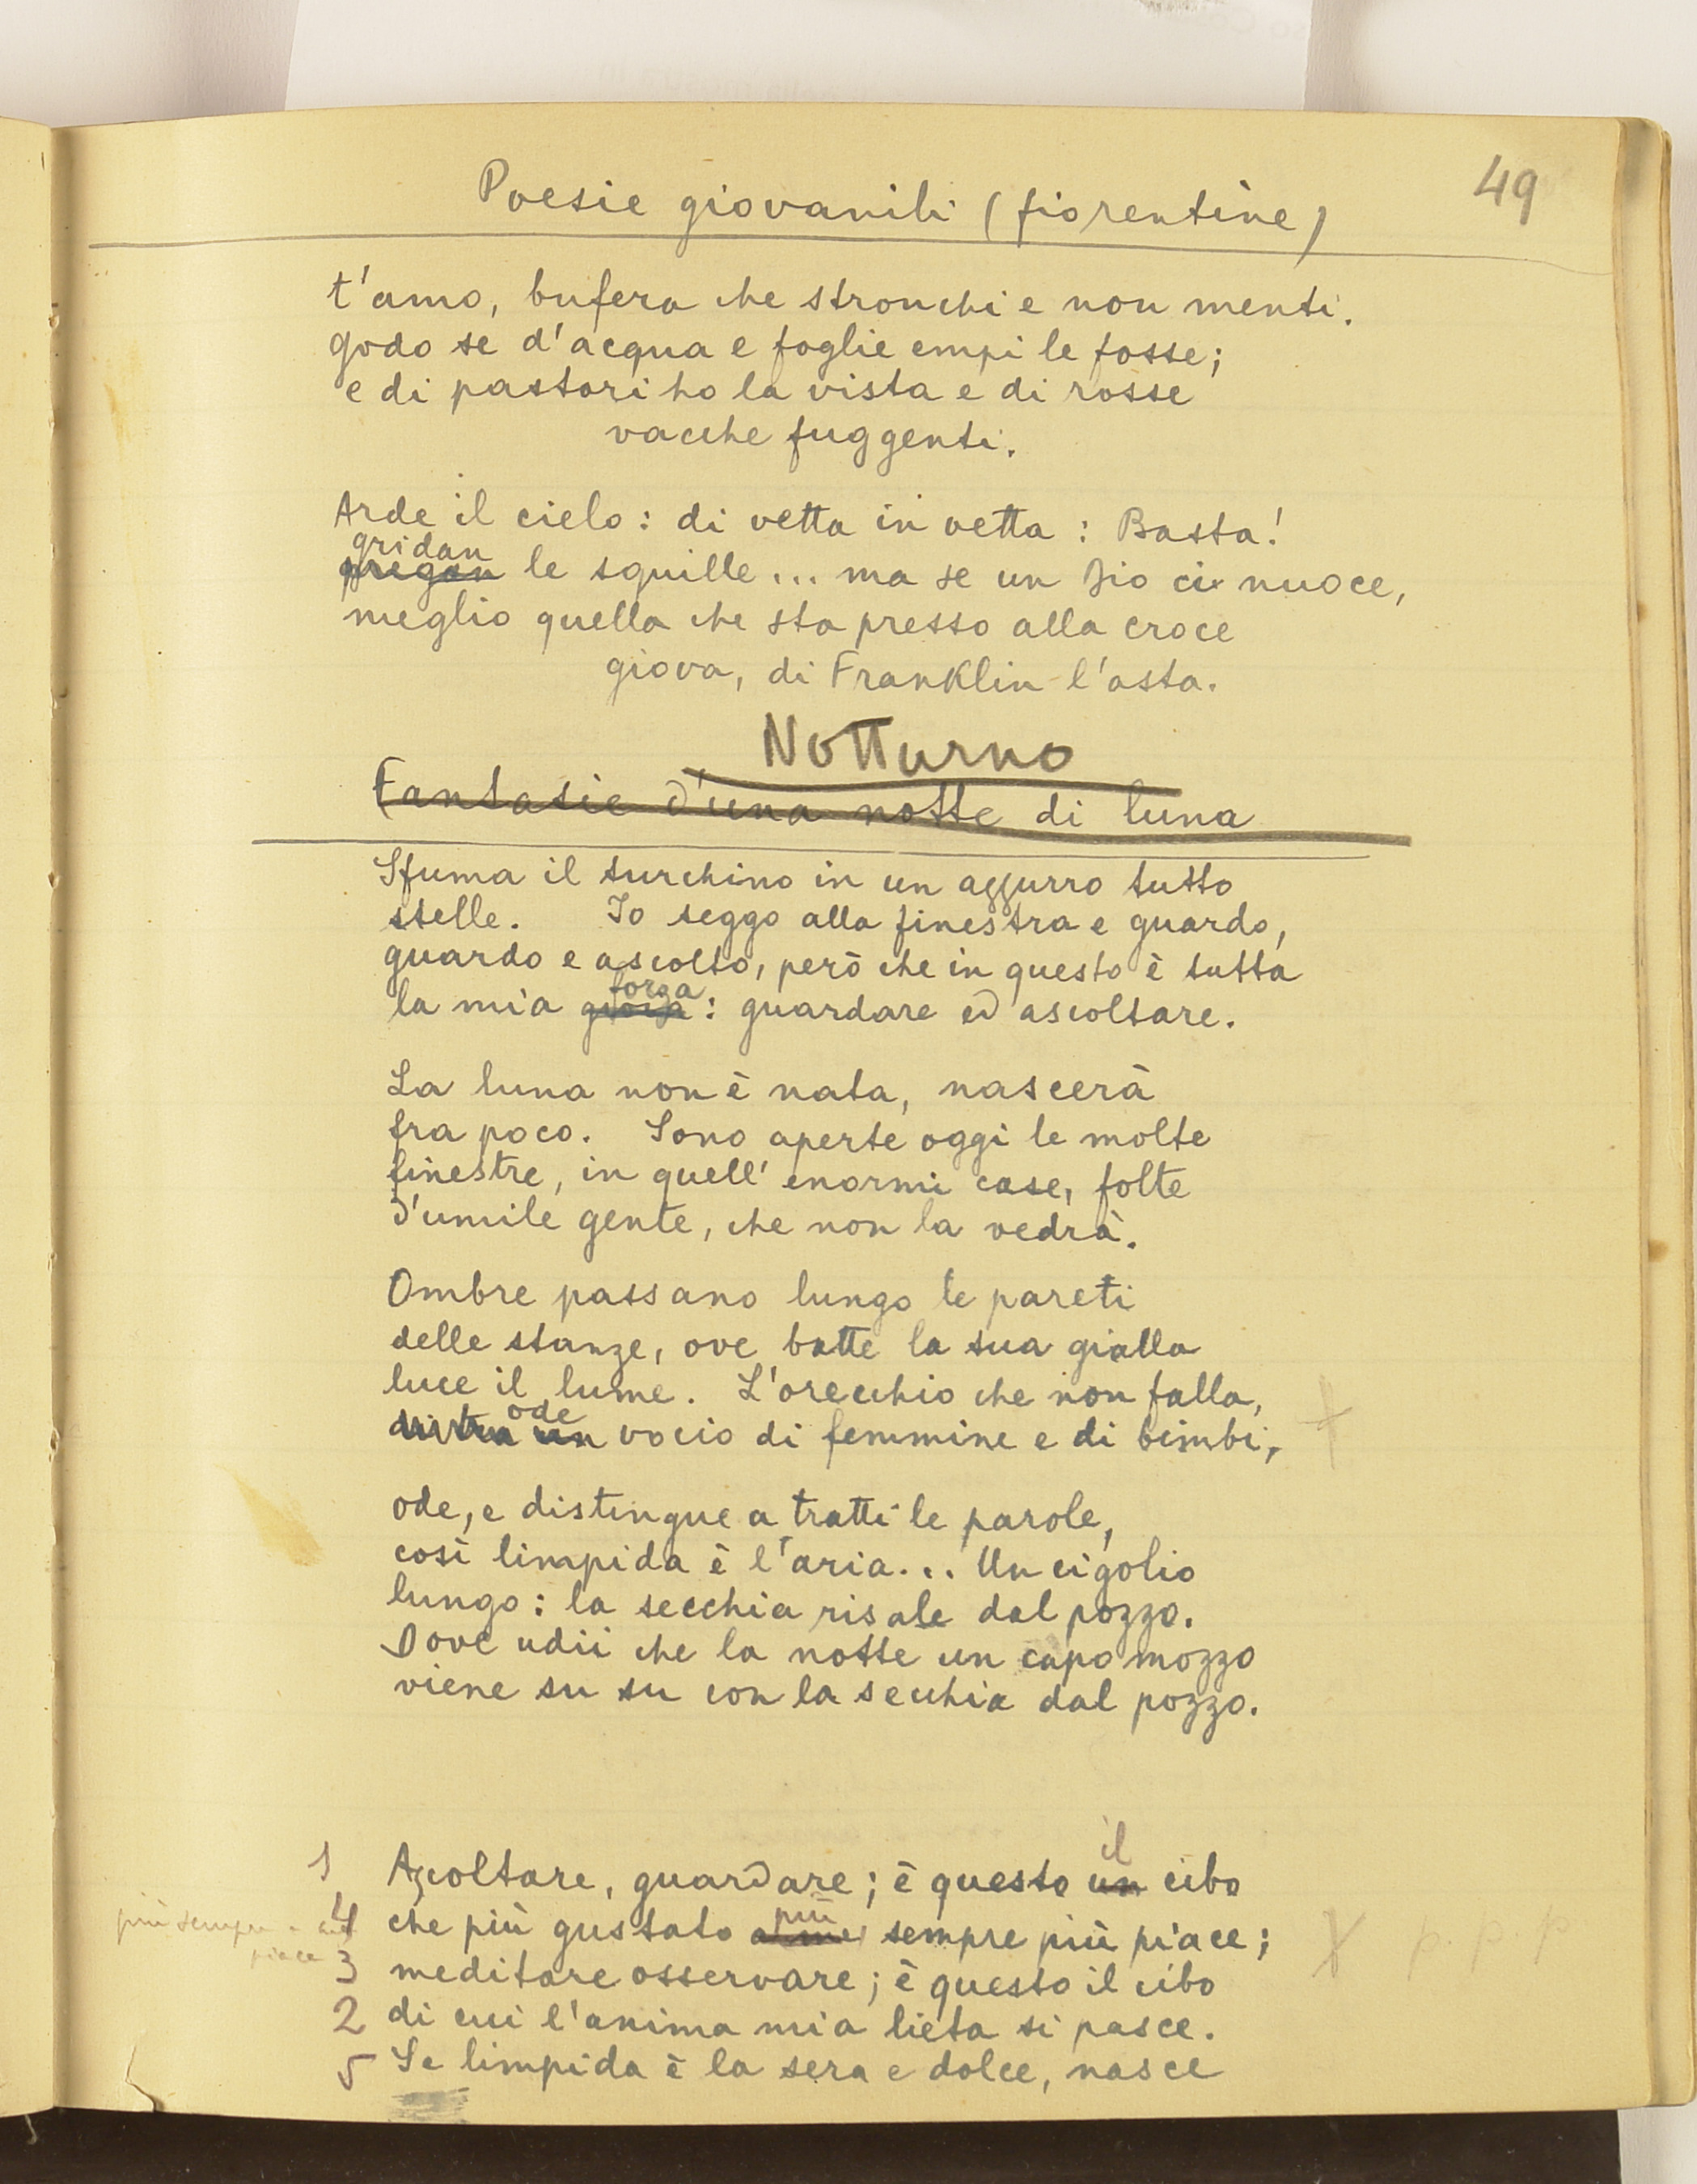 49
Poesie giovanili (fiorentine)
t'amo, bufera che stronchi e non menti.
godo se d'acqua e foglie empi le fosse;
e di pastori ho la vista e di rosse
vacche fuggenti.
Arde il cielo: di vetta in vetta: Basta!
gridan
pregan le squille... ma se un Dio ci nuoce,
meglio quella che sta presso alla croce
giova, di Franklin l'asta.
Notturno
Fantasie d'una notte di luna
Sfuma il turchino in un azzurro tutto
stelle. Io seggo alla finestra e guardo,
guardo e ascolto, però che in questo è tutta
forza
la mia gioia: guardare ed ascoltare.
La luna non è nata, nascerà
fra poco. Sono aperte oggi le molte
finestre, in quell' enormi case, folte
d'umile gente, che non la vedrà.
Ombre passano lungo le pareti
delle stanze, ove batte la sua gialla
luce il lume. L'orecchio che non falla,
ode
un vocio di femmine e di bimbi,
ode, e distingue a tratti le parole,
così limpida è l'aria... Un cigolio
lungo: la secchia risale dal pozzo.
Dove udii che la notte un capo mozzo
viene su su con la secchia dal pozzo.
il
1 Ascoltare, guardare; è questo un cibo
più
più sempre piace
4 che più gustato sempre più piace;
p. p p
3 meditare osservare; è questo il cibo
2 di cui l'anima mia lieta si pasce.
5 Se limpida è la sera e dolce, nasce